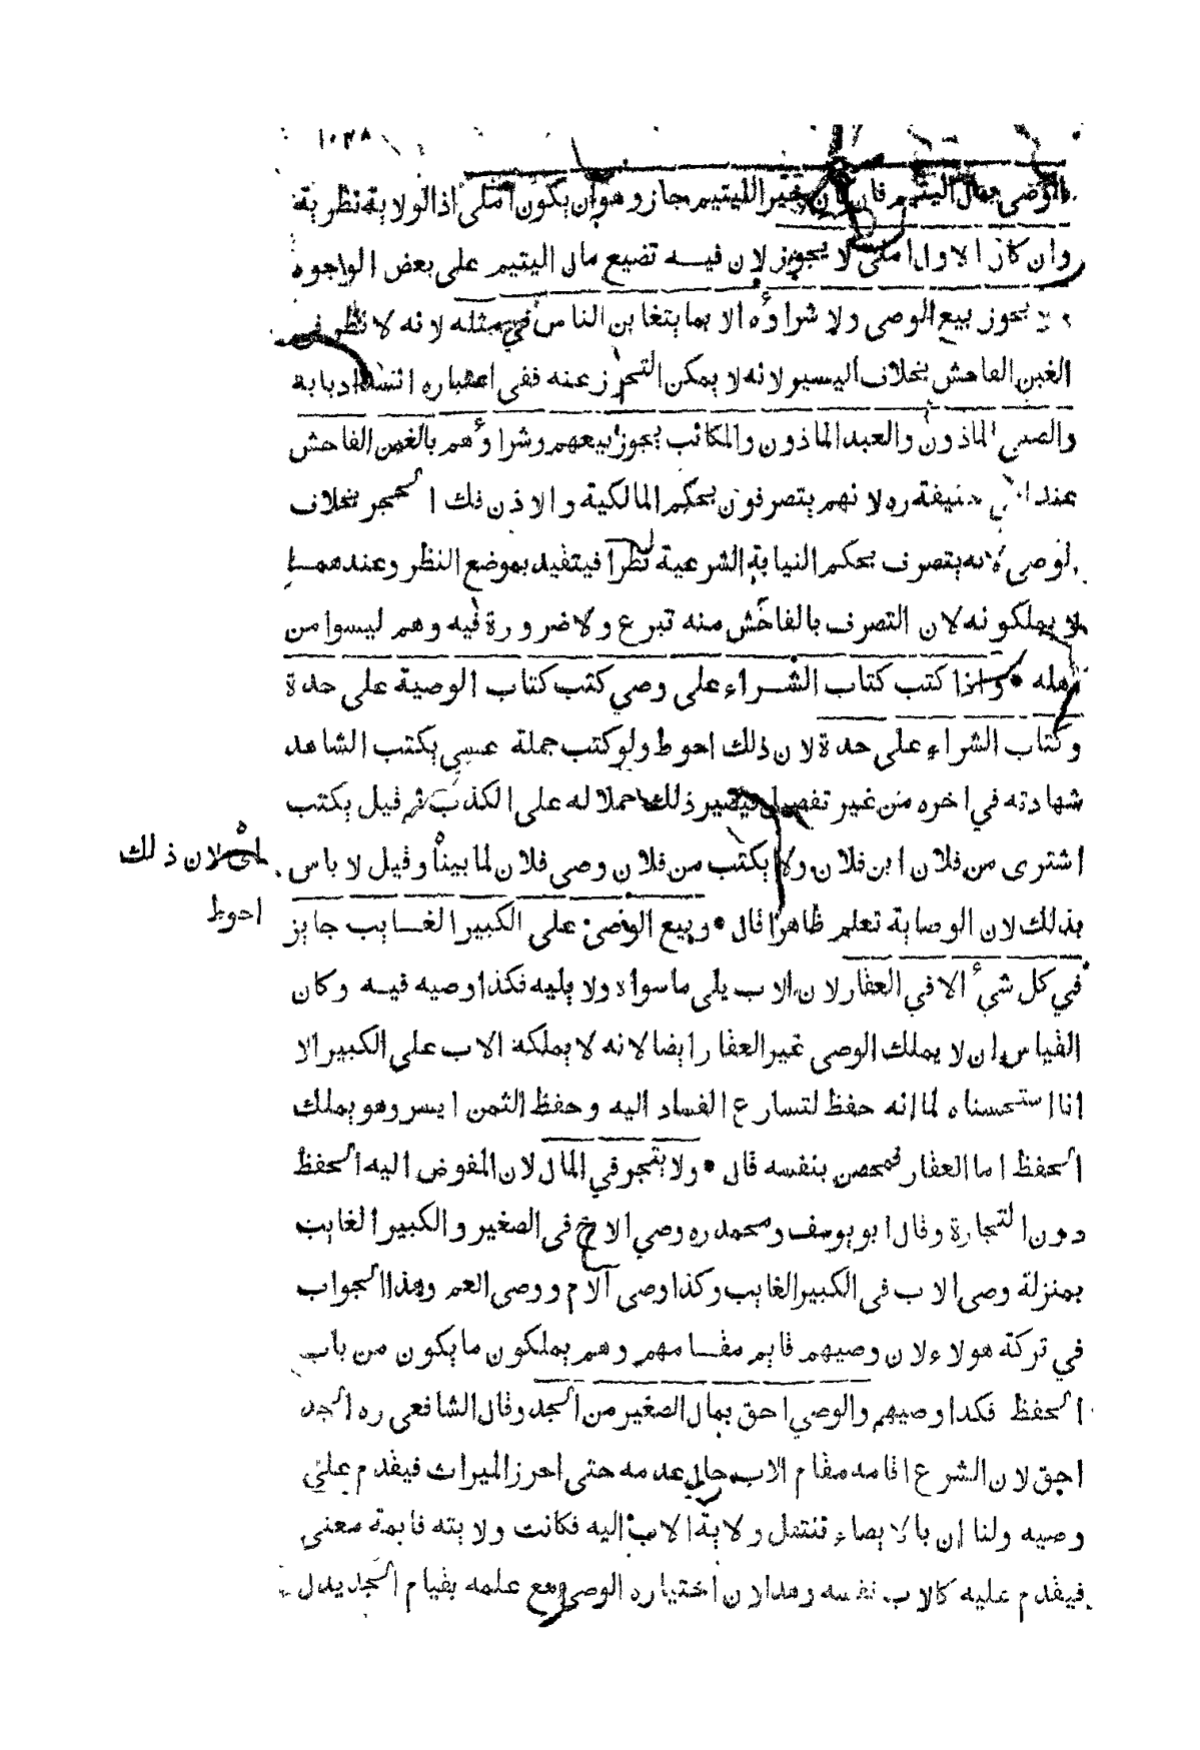 ١٠٣٨
الوصي بمال اليتيم فان كان خير الليتيم جاز وهوان يكون املى اذالولاية نظرية
وان كان الاول املى لا يجوز لان فيه تضيع مال اليتيم على بعض الواجوه
ولا يجوز بيع الوصي ولا شراؤه الا بما يتغابن الناس في مثله لانه لا نظر في
الغبن الفاحش بخلاف اليسير لانه لا يمكن التحرز عنه ففي اعتباره انسداد بابه
والصبي الماذون والعبد الماذون والمكاتب يجوز بيعهم وشراؤهم بالغبن الفاحش
عند ابي حنيفة ره لانهم يتصرفون بحكم المالكية والاذن فك الحجر بخلاف
الوصي لانه يتصرف بحكم النيابة الشرعية نظرا فيتقيد بموضع النظر وعندهما
لا يملكونه لان التصرف بالفاحش منه تبرع ولا ضرورة فيه وهم ليسوا من
اهله • واذا كتب كتاب الشراء على وصي كتب كتاب الوصية على حدة
وكتاب الشراء على حدة لان ذلك احوط ولو كتب جملة عسى يكتب الشاهد
شهادته في اخره من غير تفصيل فيصير ذلك حملا له على الكذب ثم قيل يكتب
اشترى من فلان ابن فلان ولا يكتب من فلان وصي فلان لما بينا وقيل لا باس
لان ذلك
احوط
بذلك لان الوصاية تعلم ظاهرا قال • وبيع الوصي على الكبير الغايب جايز
في كل شيء الا في العقار لان الاب يلى ما سواه ولا يليه فكذا وصيه فيه وكان
القياس ان لا يملك الوصي غير العقار ايضا لانه لا يملكه الاب على الكبير الا
انا استحسناه لما انه حفظ لتسارع الفساد اليه وحفظ الثمن ايسر وهو يملك
الحفظ اما العقار فمحصن بنفسه قال • ولا يتجر في المال لان المفوض اليه الحفظ
دون التجارة وقال ابو يوسف ومحمد ره وصي الاخ في الصغير والكبير الغايب
بمنزلة وصي الاب في الكبير الغايب وكذا وصي الام ووصي العم وهذا الجواب
في تركة هولاء لان وصيهم قايم مقامهم وهم يملكون ما يكون من باب
الحفظ فكذا وصيهم والوصي احق بمال الصغير من الجد وقال الشافعي ره الجد
احق لان الشرع اقامه مقام الاب حال عدمه حتى احرز الميراث فيقدم على
وصيه ولنا ان بالايصاء تنتقل ولاية الاب اليه فكانت ولايته قايمة معنى
فيقدم عليه كالاب نفسه وهذا لان اختياره الوصي مع علمه بقيام الجد يدل